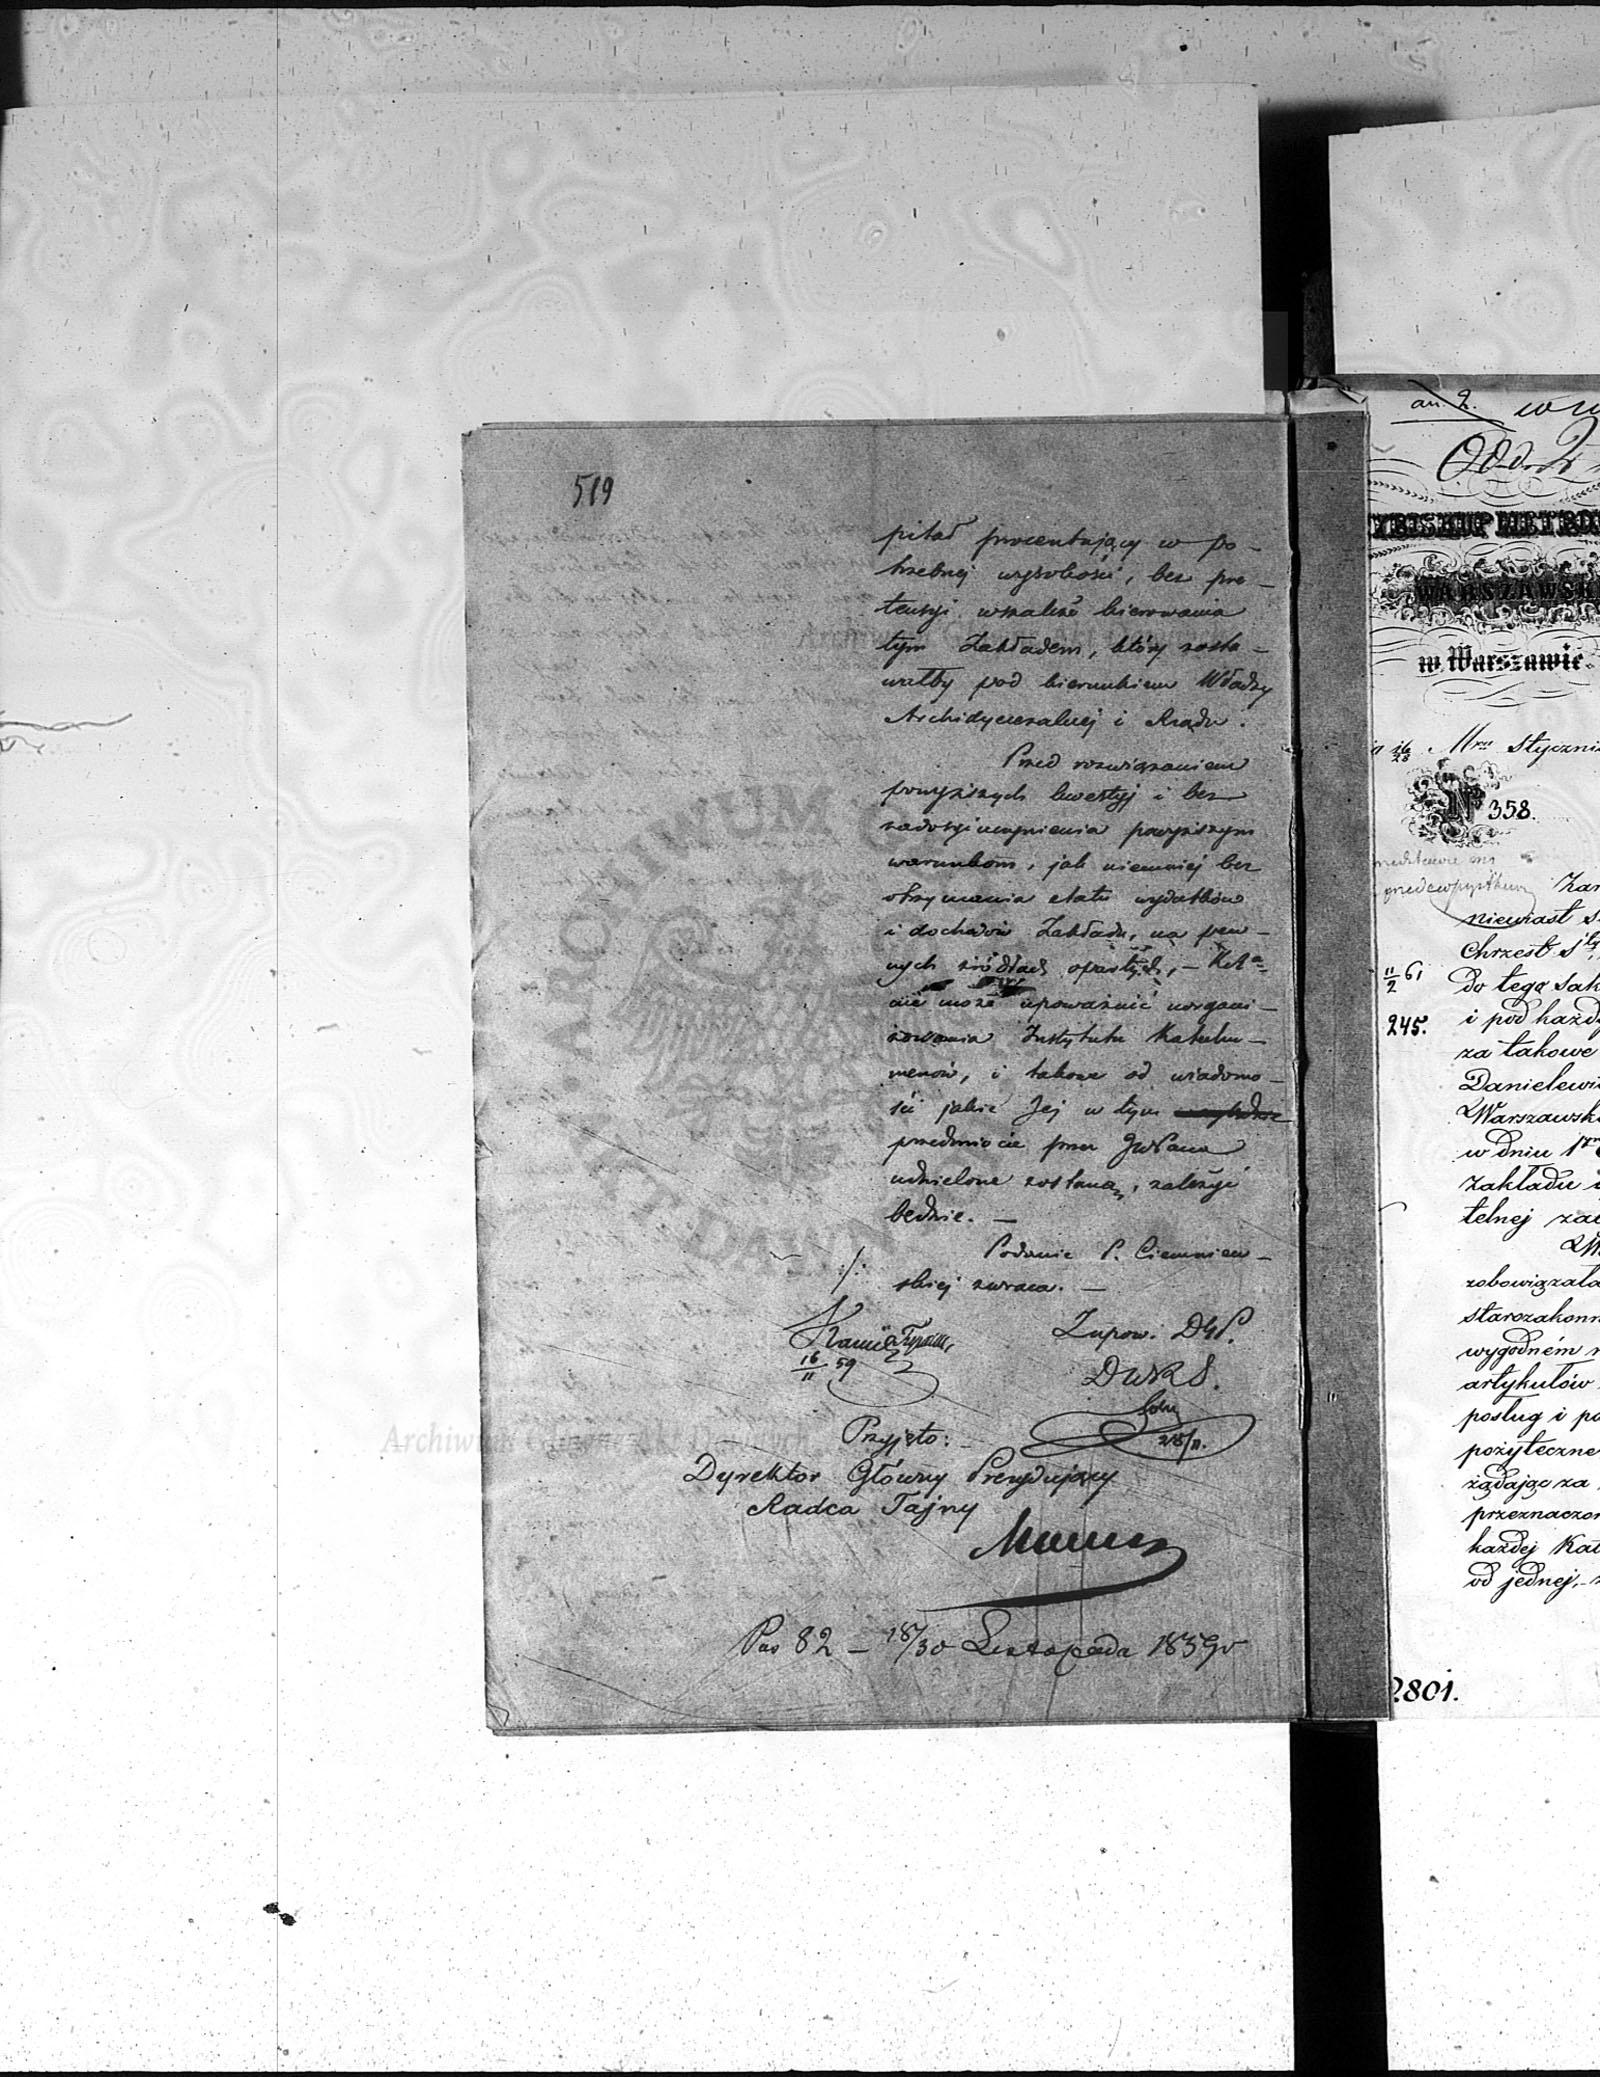 519
pitał procentujący w po-
trzebnej wysokości, bez pre-
tensyi wszakże kierowania
tym Zakładem, który zosta-
wałby pod kierunkiem Władzy
Archidyecezalnej i Rządu.
Przed rozwiązaniem
powyższych kwestyj i bez
zadosyćuczynienia powyższym
warunkom, jak niemniej bez
otrzymania etatu wydatków
i dochodów Zakładu, na pew-
nych źródłach opartych, –
nie może upoważnić uorgani-
zowania Instytutu Katechu-
menów, i takowe od wiadomo-
ści jakie Jej w tym
przedmiocie przez JWPana
udzielone zostaną, zależyć
będzie. –
Podanie P. Ciemniew-
skiej zwraca. –
16/11 59
Zupow. DGP.
DWRS.
28/11.
Przyjęto:
Dyrektor Główny Prezydujący
Radca Tajny
Pas 82 – 18/30 Listopada 1859 r
Archiwum Główne Akt Dawnych
WARSZAWSK
w Warszawie.
16/28 Mca Styczni
No 358.
niewiast s
Chrzest Sty
11/2 61
do tego Zak
245.
i pod każd
za takowe
Danielewi
Warszawsk
w dniu 1
Zakładu i
telnej za
zobowiązała
starozakonn
wygodném
artykułów
posług i po
pożyteczne
żądając za
przeznaczon
każdej Kat
od jednej,
2801.